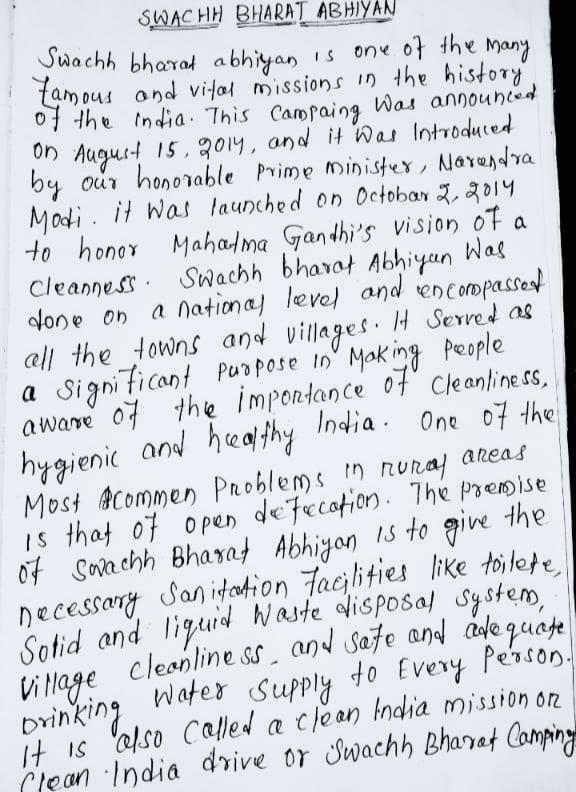 SWACHH BHARAT ABHIYAN
Swachh bharat abhiyan is one of the many
famous and vital missions in the history
of the india. This Campaing Was announced
on August 15, 2014, and it Was Introduced
by our honorable Prime minister, Narendra
Modi. it Was launched on Octobar 2, 2014
to honor Mahatma Gandhi's vision of a
cleanness. Swachh bharat Abhiyan Was
done on a national level and encompassed
all the towns and villages. It Served as
a significant purpose in Making People
aware of the importance of cleanliness,
hygienic and healthy India. One of the
Most commen Problems in rural areas
is that of open defecation. The premise
of Swachh Bharat Abhiyan is to give the
necessary Sanitation facilities like toilete,
Solid and liquid Waste disposal system,
Village cleanliness, and safe and adequate
Drinking Water supply to Every Person.
It is also Called a clean India mission or
Clean India drive or Swachh Bharat Camping